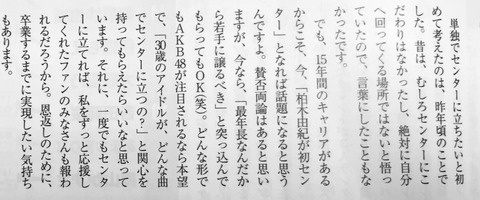 単独でセンターに立ちたいと初
めて考えたのは、昨年頃のことで
した。昔は、むしろセンターにこ
だわりはなかったし、絶対に自分
へ回ってくる場所ではないと悟っ
ていたので、言葉にしたこともな
かったです。
でも、15年間のキャリアがある
からこそ、今、「柏木由紀が初セン
ター」となれば話題になると思う
んですよ。賛否両論はあると思い
ますが、今なら、「最年長なんだか
ら若手に譲るべき」と突っ込んで
もらってもOK(笑)。どんな形で
もAKB48が注目されるなら本望
で、「30歳のアイドルが、どんな曲
でセンターに立つの?」と関心を
持ってもらえたらいいなと思って
います。それに、一度でもセンタ
ーに立てれば、私をずっと応援し
てくれたファンのみなさんも報わ
れるだろうから。恩返しのために、
卒業するまでに実現したい気持ち
もあります。